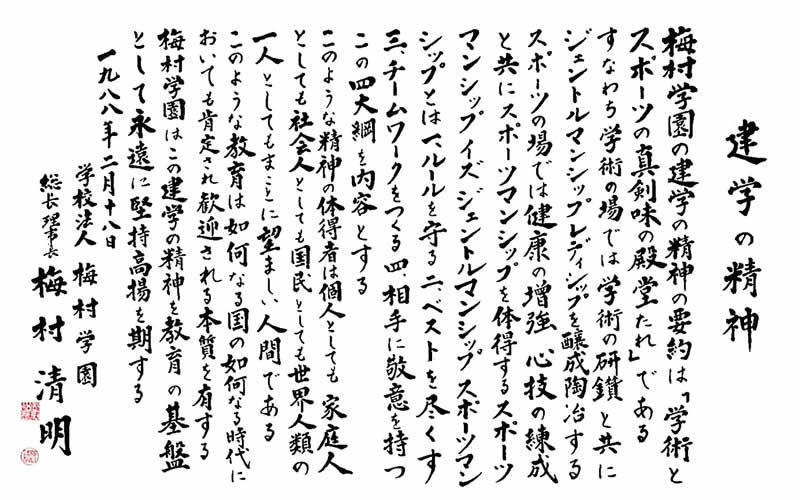 建学の精神
梅村学園の建学の精神の要約は「学術と
スポーツの真剣味の殿堂たれ」である
すなわち学術の場では学術の研鑽と共に
ジェントルマンシップレディシップを醸成陶冶する
スポーツの場では健康の増強 心技の練成
と共にスポーツマンシップを体得するスポーツ
マンシップ イズ ジェントルマンシップ スポーツマン
シップとは 一、ルールを守る 二、ベストを尽くす
三、チームワークをつくる 四、相手に敬意を持つ
この四大綱を内容とする
このような精神の体得者は個人としても 家庭人
としても社会人としても国民としても世界人類の
一人としてもまことに望ましい人間である
このような教育は如何なる国の如何なる時代に
おいても肯定され歓迎される本質を有する
梅村学園はこの建学の精神を教育の基盤
として永遠に堅持高揚を期する
一九八八年二月十八日
学校法人 梅村学園
総長 理事長 梅村清明